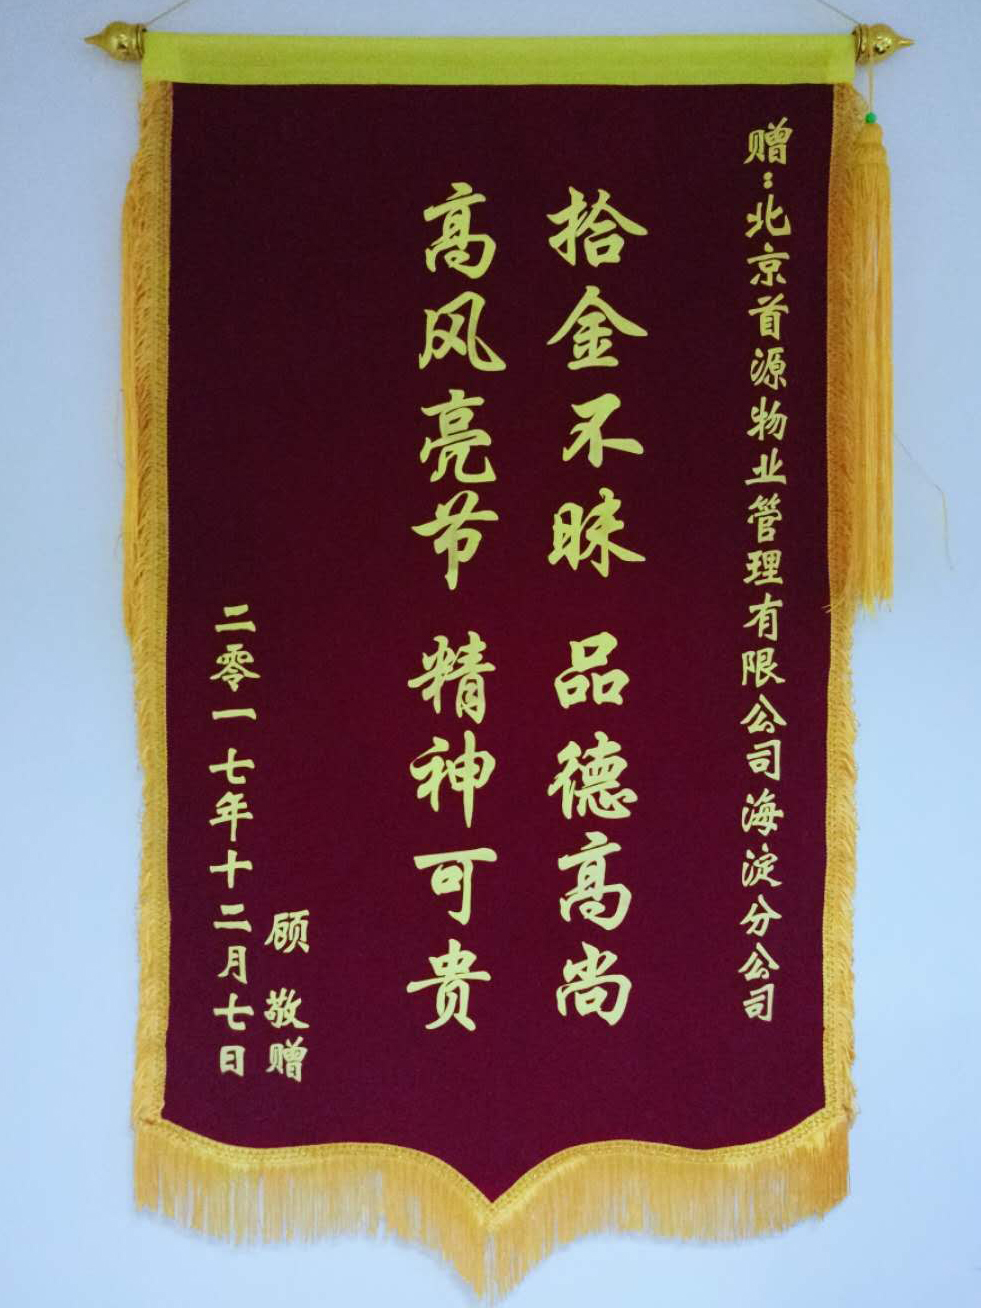 赠:北京首源物业管理有限公司海淀分公司
拾金不昧 品德高尚
高风亮节 精神可贵
顾 敬赠
二零一七年十二月七日